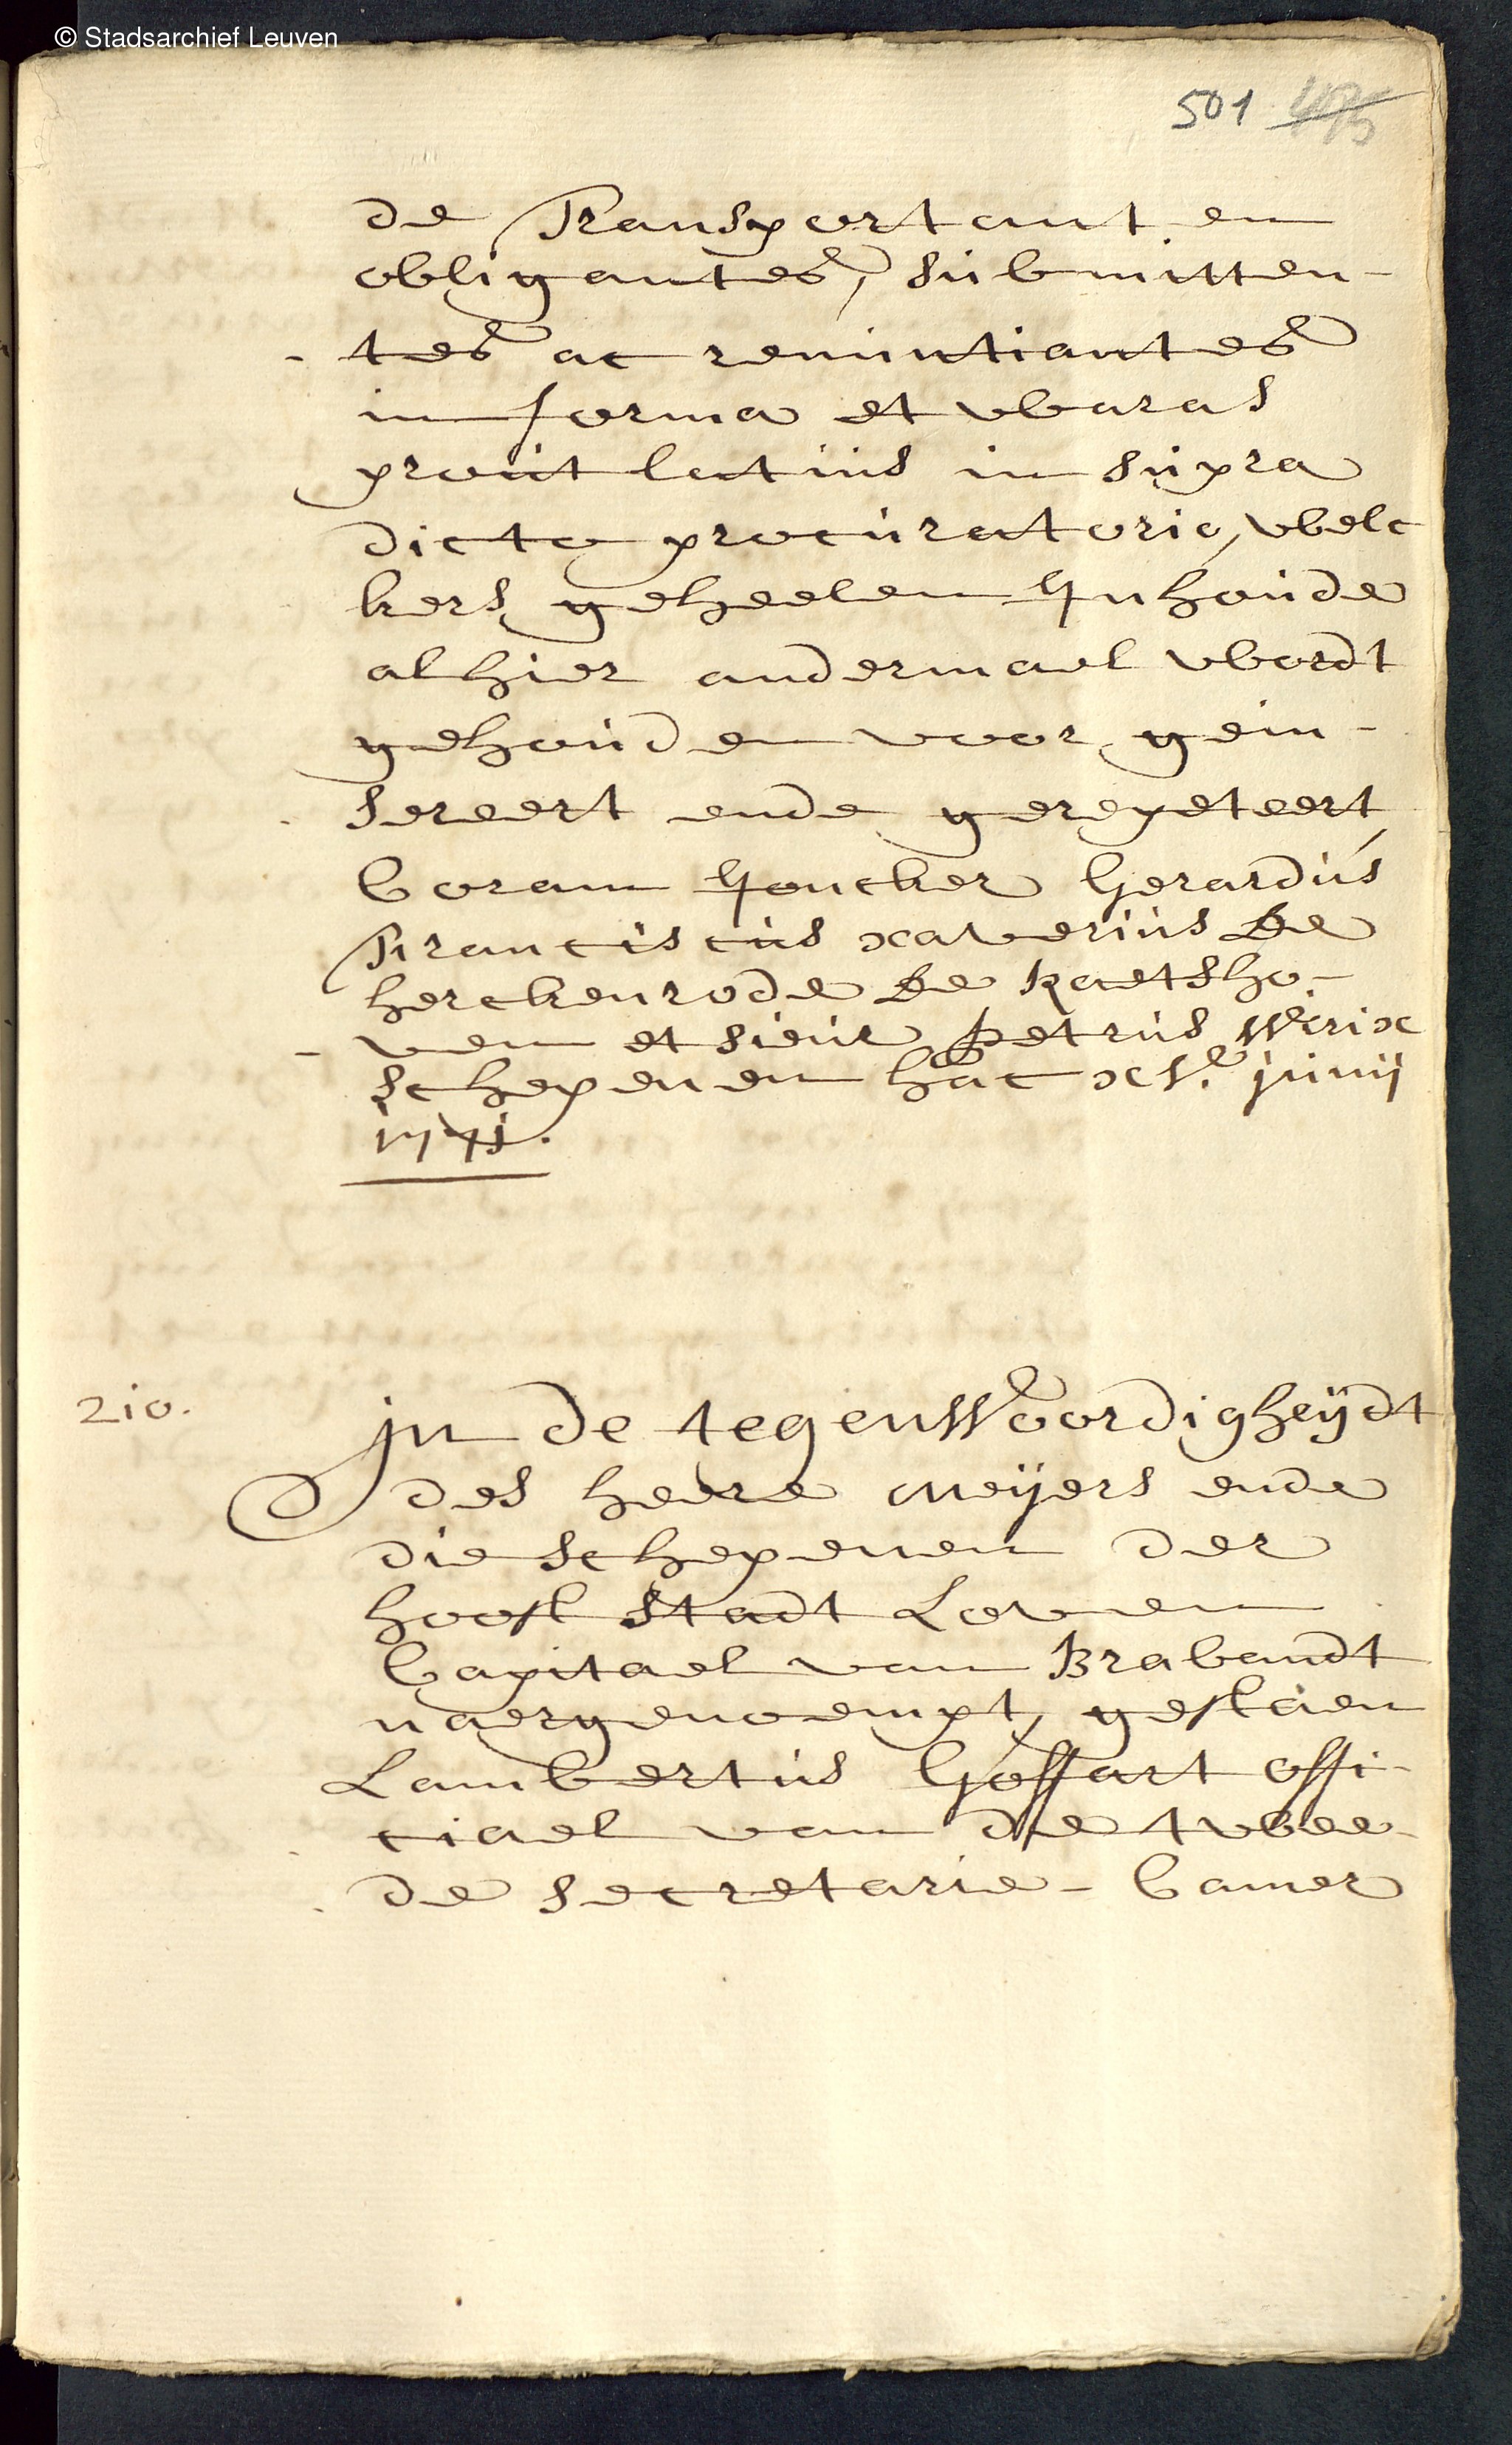 © Stadsarchief Leuven
501
de Transportant en
obligantes, submitten-
- tes ac renuntiantes
in forma et waras
prout latius in supra
dicto procuratorio, welc
kers geheelen Inhoúde
alhier andermael wordt
gehoúden voor gein-
sereert ende gerepeteert
Coram Joncker Gerardús
Franciscús xaverius de
herckenrode de Raetsho-
- ven et Sieúr petrús Wirix
schepenen hac xv.e junij
1741.
210.
jn de tegenWoordigheÿdt
des heere Meÿers ende
die schepenen der
hooft Stadt Loven
Capitael van Brabandt
naergenoempt, gestaen
Lambertús Goffart offi-
ciael van de twee-
de secretarie-Camer